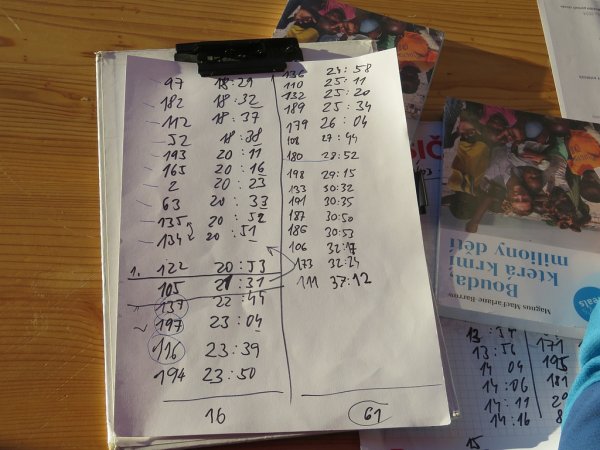 97 18:29
182 18:32
112 18:37
52 18:38
193 20:11
165 20:16
2 20:23
63 20:33
135 20:52
134 20:51
1. 122 20:53
105 21:31
137 22:44
197 23:04
116 23:39
194 23:50
16
136 24:58
110 25:11
132 25:20
189 25:34
179 26:04
108 27:44
180 28:52
198 29:15
133 30:32
191 30:35
187 30:50
186 30:53
106 32:17
173 32:24
111 37:12
61
Bouda,
která krmí
miliony dětí
Magnus MacFarlane-Barrow
13:56
14 04
14:06
14:11
14:16
15
171
195
181
20
8